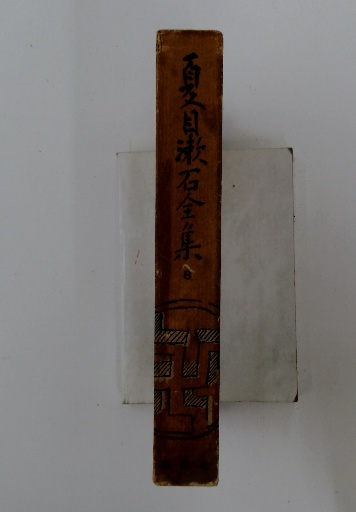 夏目漱石全集
8